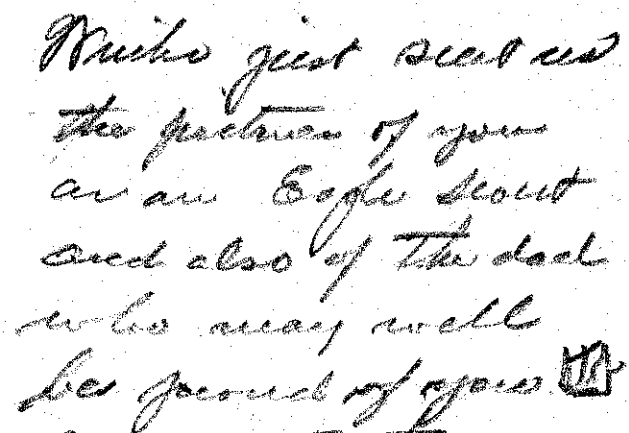 just sent us
the pictures of you
as an Eagle Scout
and also of the dad
who may well
be proud of you